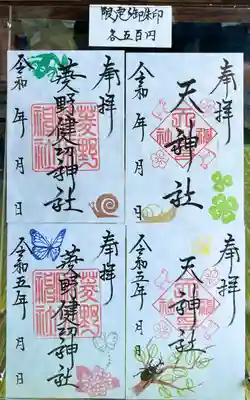 限定御朱印
各五百円
奉拝
菱野健功神社
令和 年 月 日
奉拝
天神社
令和 年 月 日
奉拝
菱野健功神社
令和五年 月 日
奉拝
天神社
令和五年 月 日